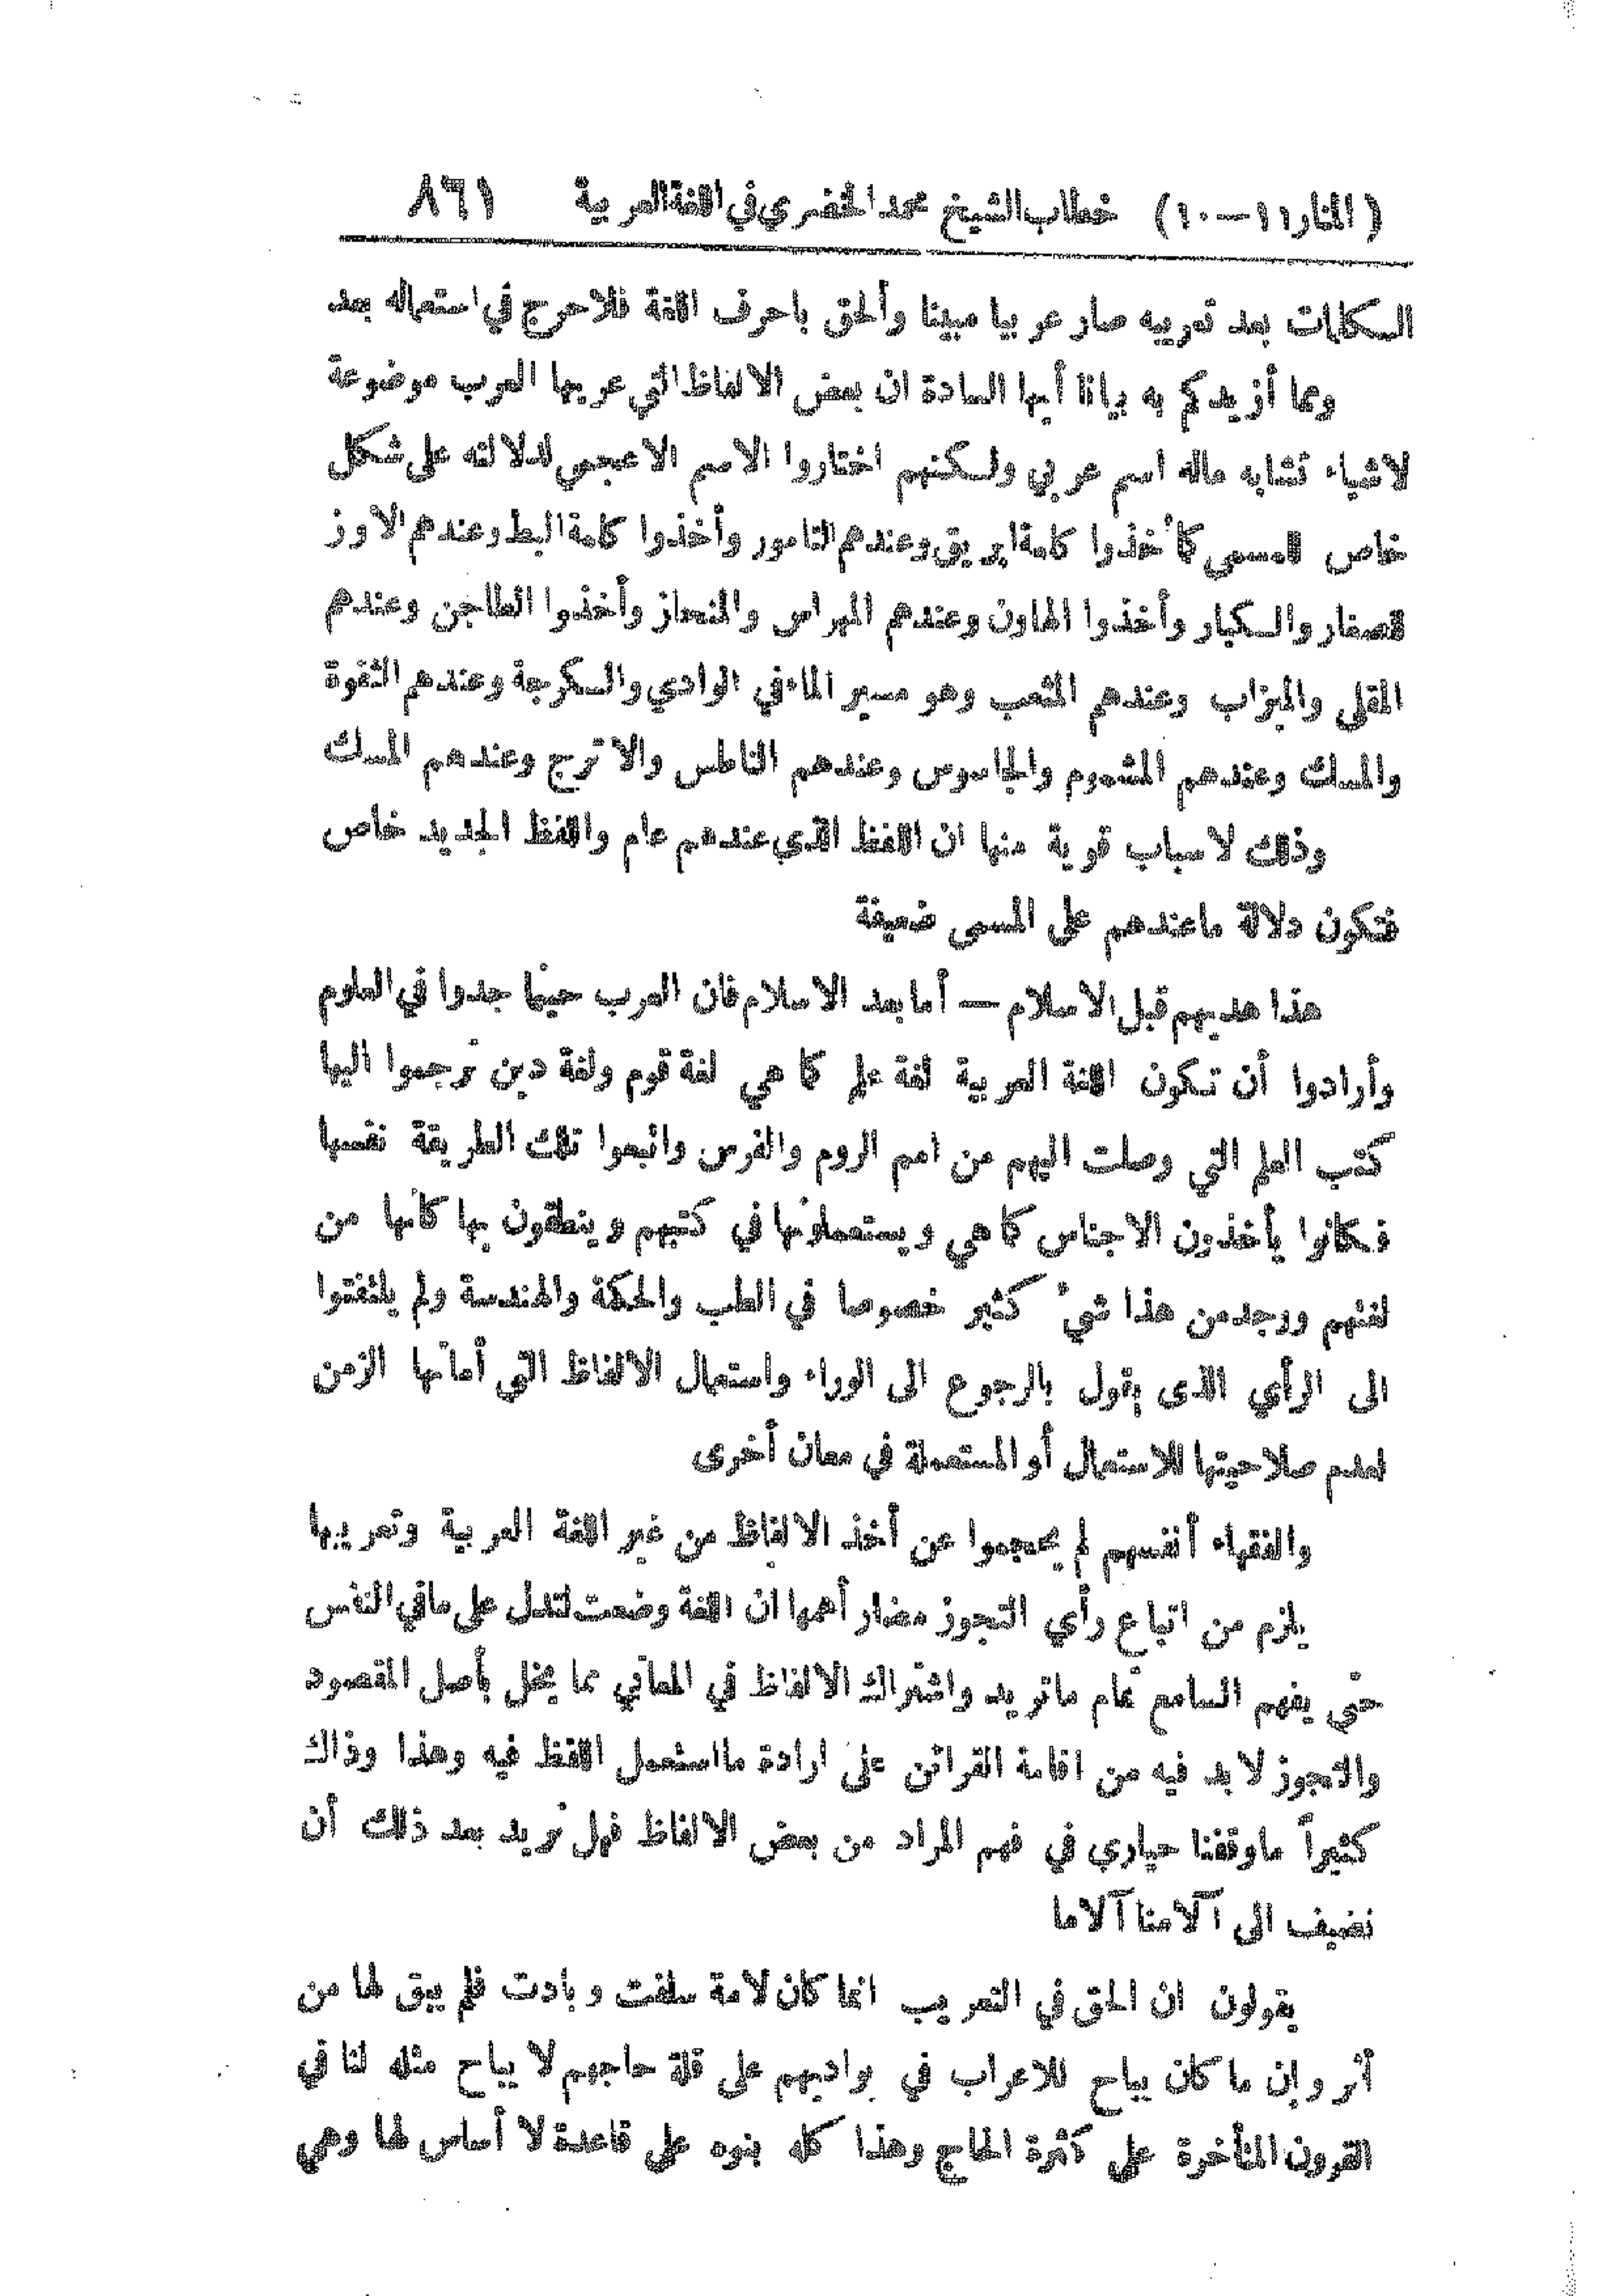 (المنار ١١—١٠) خطاب الشيخ محمد الخضري في اللغة العربية ٨٦١
الكلمات بعد تعريبه صار عربيا مبينا وألحق باحرف اللغة فلا حرج في استعماله بعد
ومما أزيدكم به بيانا أيها السادة ان بعض الالفاظ التي عربها العرب موضوعة
لاشياء تشابه ماله اسم عربي ولكنهم اختاروا الاسم الاعجمي لدلالته على شكل
خاص للمسمى كأخذوا كلمة ابريق وعندهم التامور وأخذوا كلمة البط وعندهم الاوز
للصغار والكبار وأخذوا الهاون وعندهم المهراس والمنحاز وأخذوا الطاجن وعندهم
المقلى والميزاب وعندهم المثعب وهو مسير الماء في الوادي والسكرجة وعندهم الثقوة
والمسك وعندهم المشموم والجاسوس وعندهم الناطس والاترج وعندهم المسك
وذلك لاسباب قوية منها ان اللفظ الذي عندهم عام واللفظ الجديد خاص
فتكون دلالة ماعندهم على المسمى ضعيفة
هذا هديهم قبل الاسلام — أما بعد الاسلام فان العرب حينما جدوا في العلوم
وأرادوا أن تكون اللغة العربية لغة علم كما هي لغة قوم ولغة دين ترجموا اليها
كتب العلم التي وصلت اليهم من امم الروم والفرس واتبعوا تلك الطريقة نفسها
فكانوا يأخذون الاجناس كما هي ويستعملونها في كتبهم وينطقون بها كأنها من
لغتهم ووجد من هذا شيء كثير خصوصا في الطب والحكمة والهندسة ولم يلتفتوا
الى الرأي الذى يقول بالرجوع الى الوراء واستعمال الالفاظ التي أماتها الزمن
لعدم صلاحيتها للاستعمال أو المستعملة في معان أخرى
والفقهاء أنفسهم لم يحجموا عن أخذ الالفاظ من غير اللغة العربية وتعريبها
يلزم من اتباع رأي التجوز مضار أهمها ان اللغة وضعت لتدل على مافي النفس
حتى يفهم السامع تمام ماتريد واشتراك الالفاظ في المعاني مما يخل بأصل المقصود
والتجوز لا بد فيه من اقامة القرائن على ارادة مااستعمل اللفظ فيه وهذا وذاك
كثيراً ماوقفنا حيارى في فهم المراد من بعض الالفاظ فهل نريد بعد ذلك أن
نضيف الى آلامنا آلاما
يقولون ان الحق في التعريب انما كان لامة سلفت وبادت فلم يبق لها من
أثر وإن ما كان يباح للاعراب في بواديهم على قلة حاجهم لا يباح مثله لنا في
القرون المتأخرة على كثرة الحاج وهذا كله بنوه على قاعدة لا أساس لها وهي